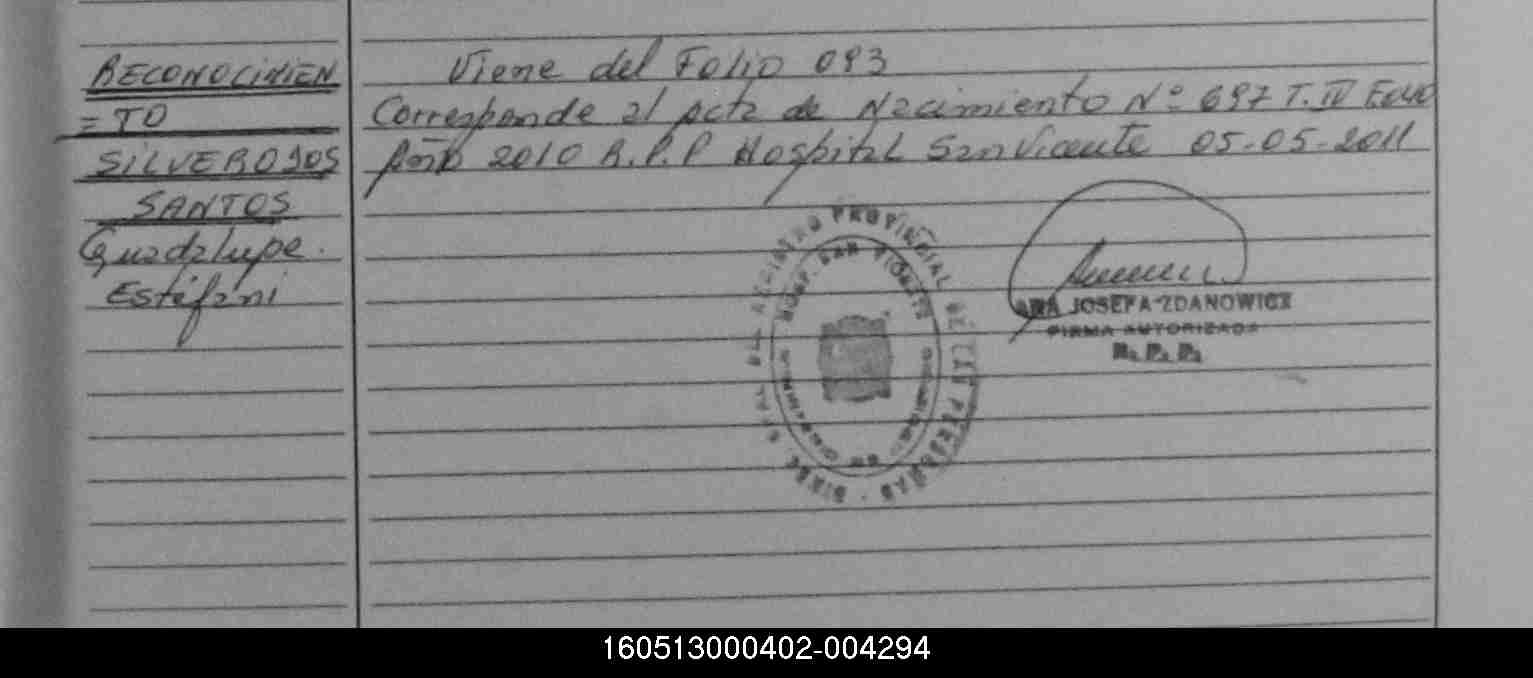 RECONOCIMIEN
=TO
SILVERO JOS
SANTOS
Guadalupe.
Estéfani
Viene del Folio 093
Corresponde al acta de Nacimiento Nº 697 T. IV Folio
Año 2010 R.P.P Hospital San Vicente 05-05-2011
REGISTRO PROVINCIAL DE LAS PERSONAS
HOSP. SAN VICENTE
ANA JOSEFA ZDANOWICZ
FIRMA AUTORIZADA
R. P. P.
160513000402-004294